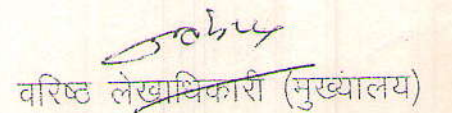 वरिष्ठ लेखाधिकारी (मुख्यालय)